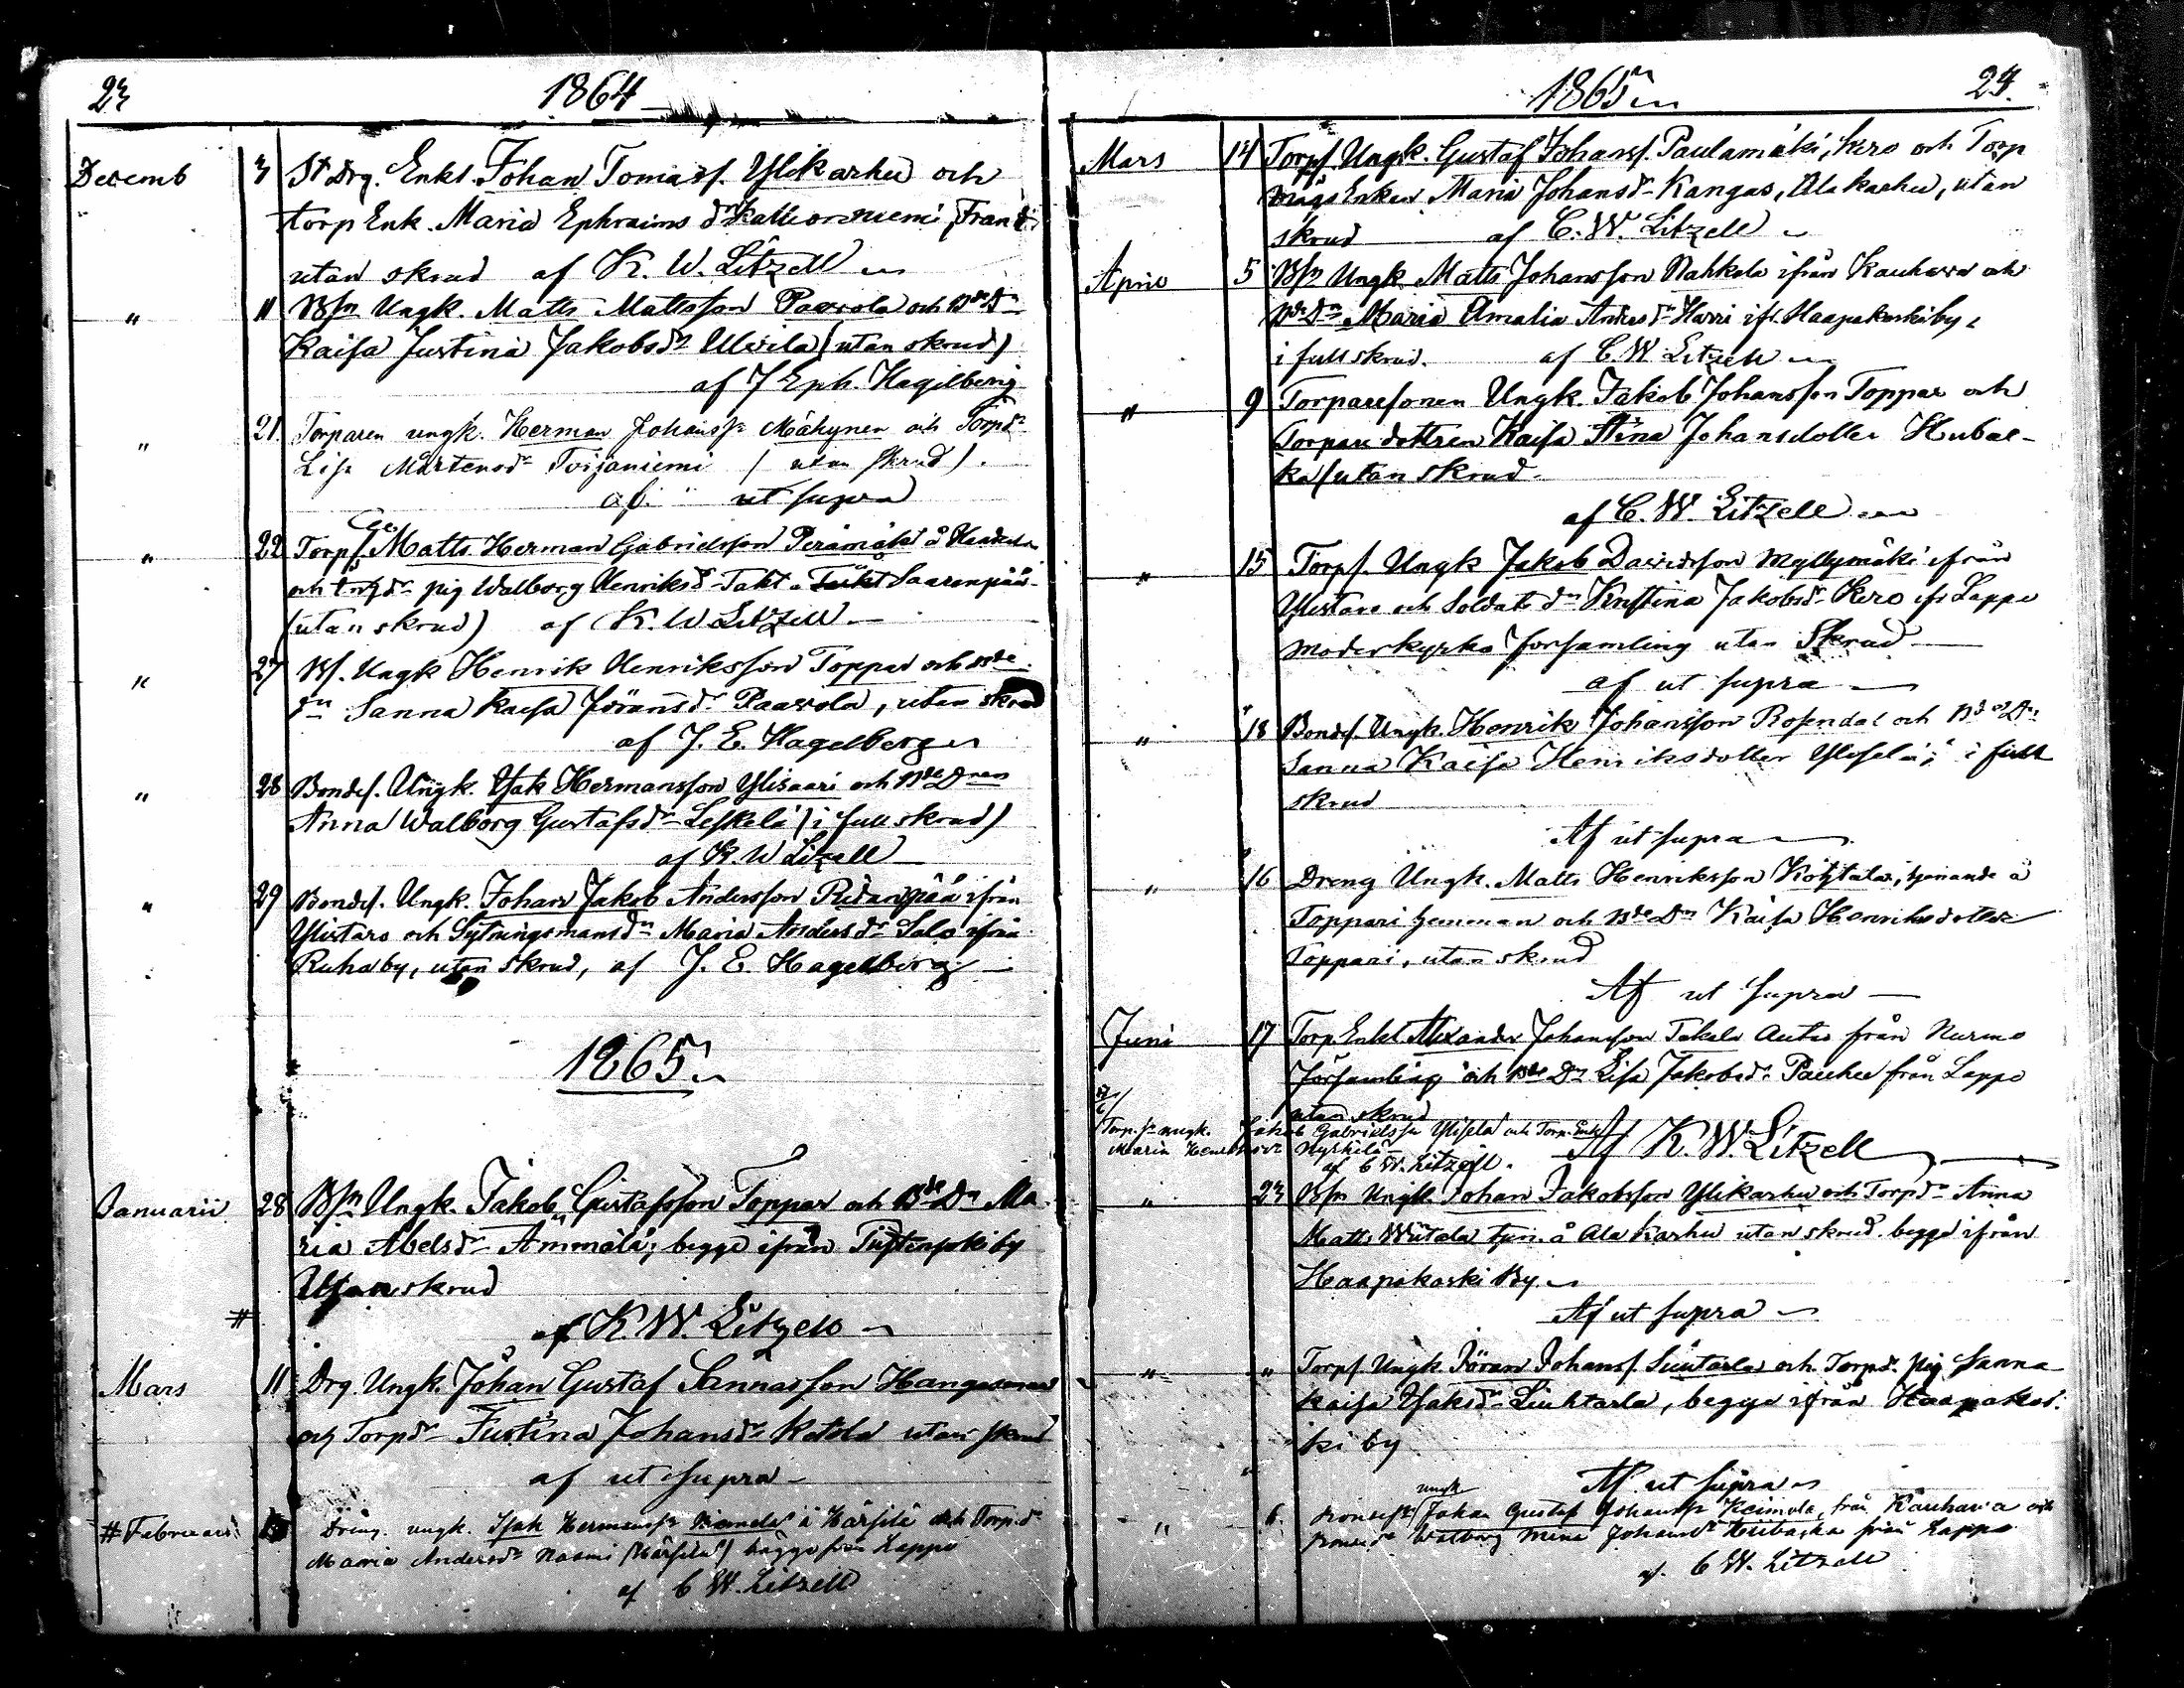 23 1864
Decemb 3 St Drg. Enkl. Johan Tomass. Ylikarhu och
torp Enk. Maria Ephraims dr Kallioniemi,
utan skrud af K. W. Litzell
" 11 Bsn Ungk. Matts Mattsson Paavola och Bde Dn
Kaisa Justina Jakobsdr (utan skrud)
af J Eph. Hagelberg
" 21 Torparen ungk. Herman Johanss: Mähynen och Torpdr
Lisa Mårtensdr (utan skrud).
af. ut supra
" 22 Torps Matts Herman Gabrielsson Perämäki å
och pig Walborg Henriksdr Saarenpää
(utan skrud) af K. W Litzell
" 27 Bs. Ungk Henrik Henriksson Toppar och Bde
dn Sanna Kaisa Jöransdr Paavola, utan skrud
af J. E. Hagelberg
" 28 Bondes. Ungk. Isak Hermansson Ylisaari och Bde Dren
Anna Walborg Gustafsdr Leskelä (i full skrud)
af K. W Litzell
" 29 Bondes. Ungk. Johan Jakob Andersson Ridanpää ifrån
Ylistaro och Sytningsmans dn Maria Anders dr Salo ifrån
Ruhaby, utan skrud, af J. E. Hagelberg
1865
Januarii 28 Bsn Ungk. Jakob Gustafsson Toppar och Bde Dn Ma
ria Abelsdr Ämmälä, begge ifrån Tiistenjokiby
Utan skrud
# af K. W. Litzell
Mars 11 Drg. Ungk. Johan Gustaf Sannasson
och Torpdr Justina Johansdr Ketola utan skrud
af ut supra
# Februari Dräng. ungk. Isak Hermanss: å Härsilä och Torp.dr
Maria Andersdr Naomi (Härsilä) bägge från Lappo
af C W. Litzell
1865 24.
Mars 14 Torps. Ungk. Gustaf Johanss. Paulamäki, Kero och Torp
mågs Enkan Maria Johansdr Kangas, Alakarhu, utan
skrud af C. W. Litzell
April 5 Bsn Ungk Matts Johansson Nahkala ifrån Kauhava och
Bde Dn Maria Amalia Andersdr Harri ifr. Haapakoskiby,
i full skrud. af C. W Litzell
" 9 Torparesonen Ungk. Jakob Johansson Toppar och
Torpare dottren Kaisa Stina Johansdotter Hubac-
ka (utan skrud
af C. W. Litzell
" 15 Torps. Ungk Jakob Davidsson Myllymäki ifrån
Ylistaro och Soldats dn Kristina Jakobsdr Kero ifr Lappo
moderkyrko församling utan Skrud
af ut supra
" 18 Bondes. Ungk. Henrik Johansson Rosendal och Bde Dn
Sanna Kaisa Henriksdotter Yliselä, i full
skrud
Af ut supra
" 16 Dreng Ungk. Matts Henriksson, tjenande å
Toppari hemman och Bde Dn Kaisa Henriksdotter
Toppari, utan skrud
Af ut supra
Juni 17 Torp Enkl. Alexander Johansson Takala Autio från Nurmo
församling och Bde Dn Lisa Jakobsdr Pauhu från Lappo
utan skrud
17/6
Torp.sn ungk. Jakob Gabrielss: Yliselä och Torp. Enk Af K. W. Litzell
Maria Henriksdr Nyrhilä
af C W. Litzell.
" 23 Bsn Ungk. Johan Jakobsson Ylikarhu och Torpdr Anna
Matts Wiitala tjen. å Ala Karhu utan skrud. begge ifrån
Haapakoski By.
Af ut supra
" " Torps. Ungk. Jöran Johanss. Liuhtarla och Torpdr. pig Sanna
Kaisa Isaksdr Liuhtarla, begge ifrån Haapakos-
ki by
Af ut supra
" 6. Bondess: ungk Johan Gustaf Johanss: Keimola, från Kauhava och
Bondedr Walborg Mina Johansdr Hubacka från Lappo
af C W. Litzell